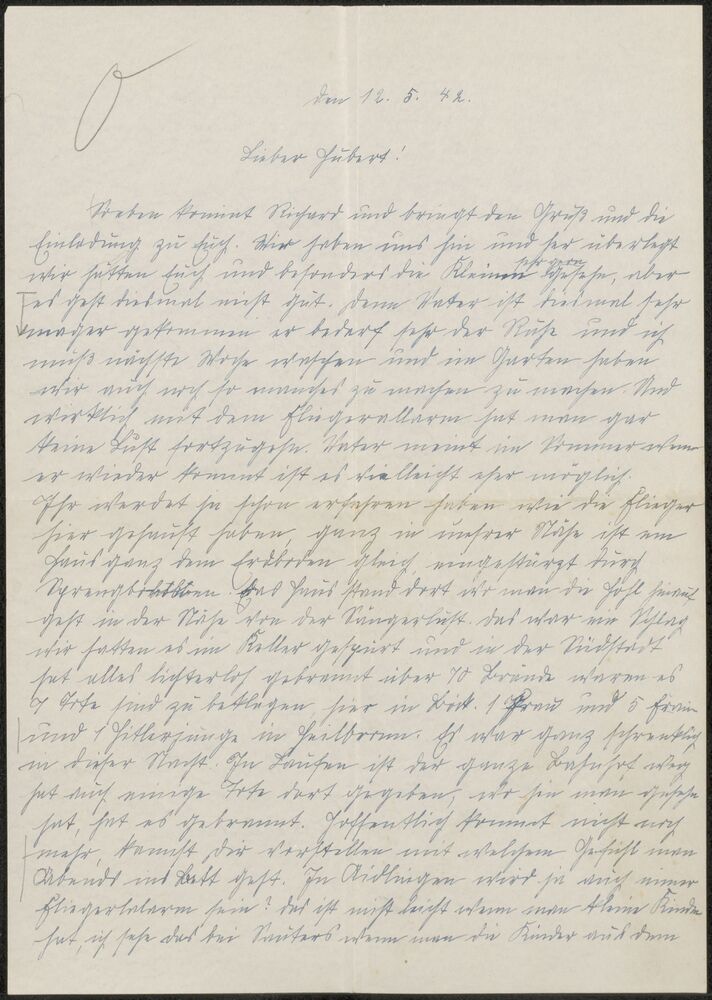 den 12. 5. 42.
Lieber Hubert!
Soeben kommt Richard und bringt den Gruß und die
Einladung zu Euch. Wir haben uns hin und her überlegt
wir hätten Euch und besonders die Kleinen sehr gern gesehe, aber
es geht diesmal nicht gut. Denn Vater ist diesmal sehr
mager gekommen er bedarf sehr der Ruhe und ich
muß nächste Woche waschen und im Garten haben
wir auch noch so manches zu machen zu machen. Und
wirklich mit dem Fliegerallarm hat man gar
keine Lust fortzugehn. Vater meint im Sommer wenn
er wieder kommt ist es vielleicht eher möglich.
Ihr werdet ja schon erfahren haben wie die Flieger
hier gehaust haben, ganz in unsrer Nähe ist ein
Haus ganz dem Erdboden gleich, eingestürzt durch
Sprengbomben. Das Haus stand dort wo man die Hohl hinauf
geht in der Nähe von der Sängerlust. das war ein Schlag
wir hatten es im Keller gespürt und in der Südstadt
hat alles lichterloh gebrannt über 70 Brände waren es
7 Tote sind zu beklagen, hier in Böck. 1 Frau und 5
und 1 Hitlerjunge in Heilbronn. Es war ganz schrecklich
in dieser Nacht. In Laufen ist der ganze Bahnhof weg
hat auch einige Tote dort gegeben, wo hin man gesehe
hat, hat es gebrannt. Hoffentlich kommt nicht noch
mehr, kannst dir vorstellen mit welchem Gefühl man
Abends ins Bett geht. In Aidlingen wird ja auch immer
Fliegeralarm sein? das ist nicht leicht wenn man kleine Kinder
hat, ich sehe das bei Sauters wenn man die Kinder aus dem